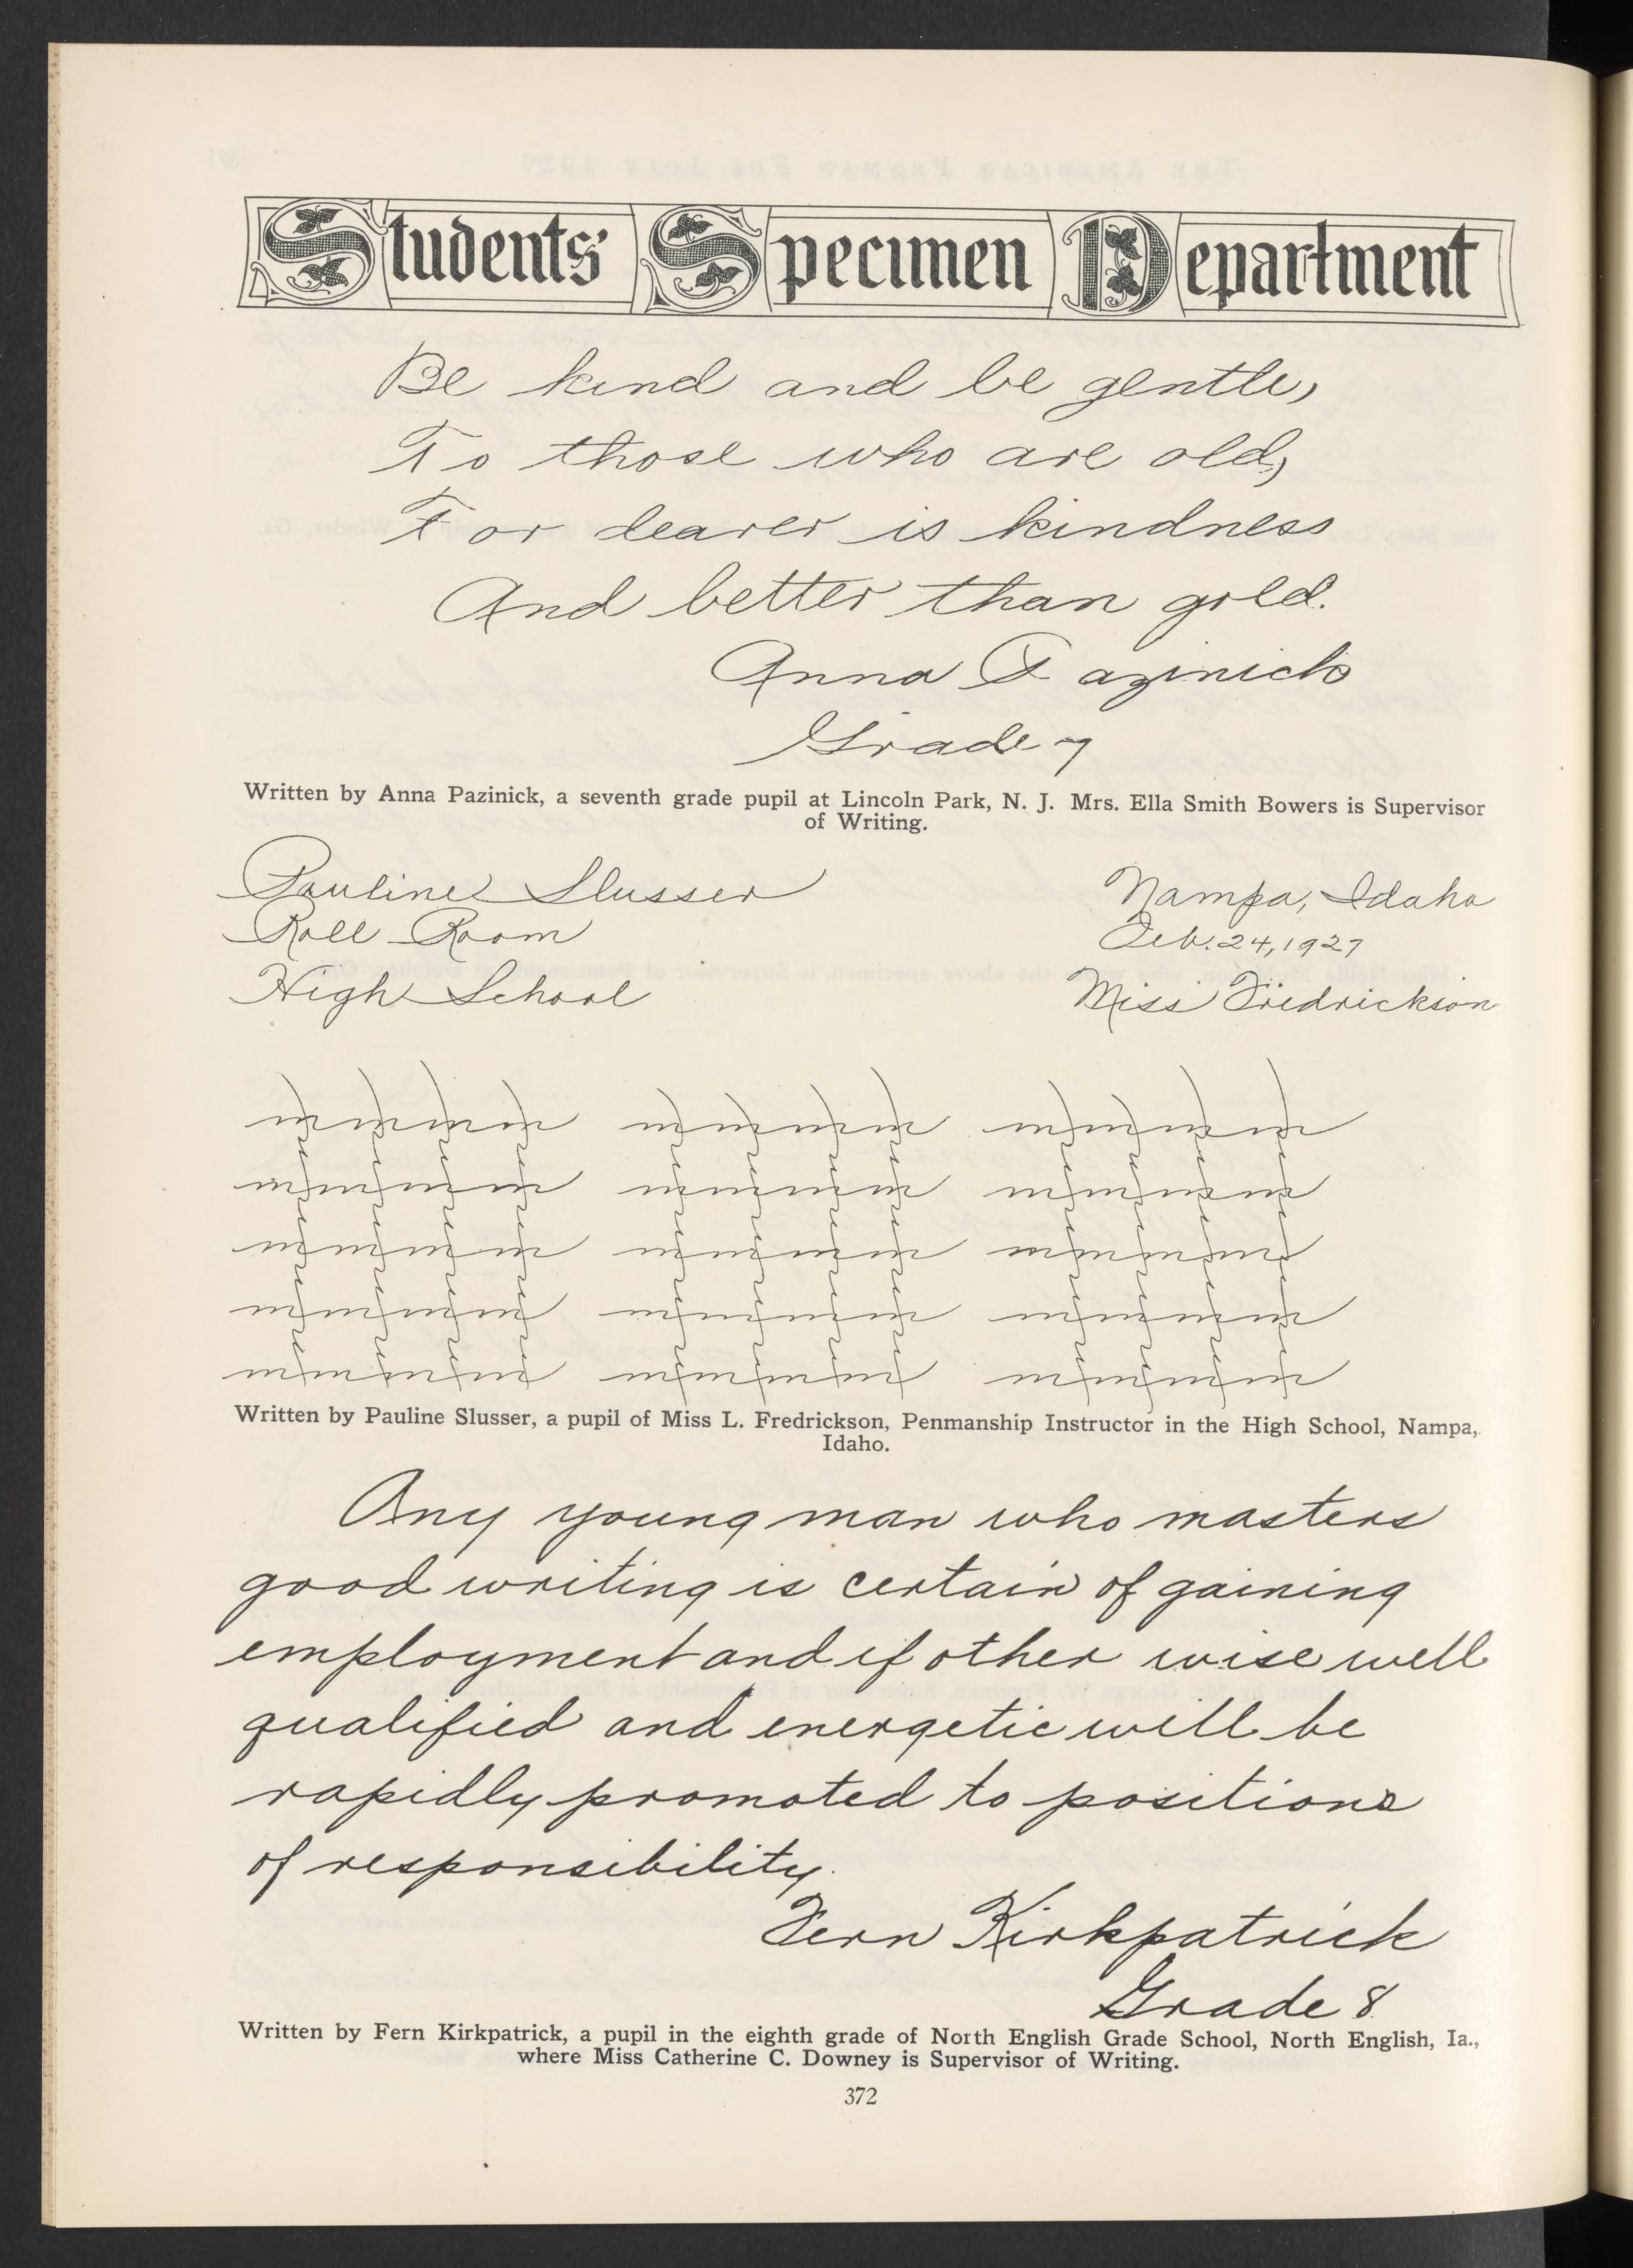 Students' Specimen Department
Be kind and be gentle,
To those who are old,
For dearer is kindness
And better than gold.
Anna Pazinick
Grade 7
Written by Anna Pazinick, a seventh grade pupil at Lincoln Park, N. J. Mrs. Ella Smith Bowers is Supervisor
of Writing.
Pauline Slusser Nampa, Idaho
Roll Room Feb. 24, 1927
High School Miss Fredrickson
Written by Pauline Slusser, a pupil of Miss L. Fredrickson, Penmanship Instructor in the High School, Nampa,
Idaho.
Any young man who masters
good writing is certain of gaining
employment and if other wise well
qualified and energetic will be
rapidly promoted to positions
of responsibility.
Fern Kirkpatrick
Grade 8
Written by Fern Kirkpatrick, a pupil in the eighth grade of North English Grade School, North English, Ia.,
where Miss Catherine C. Downey is Supervisor of Writing.
372